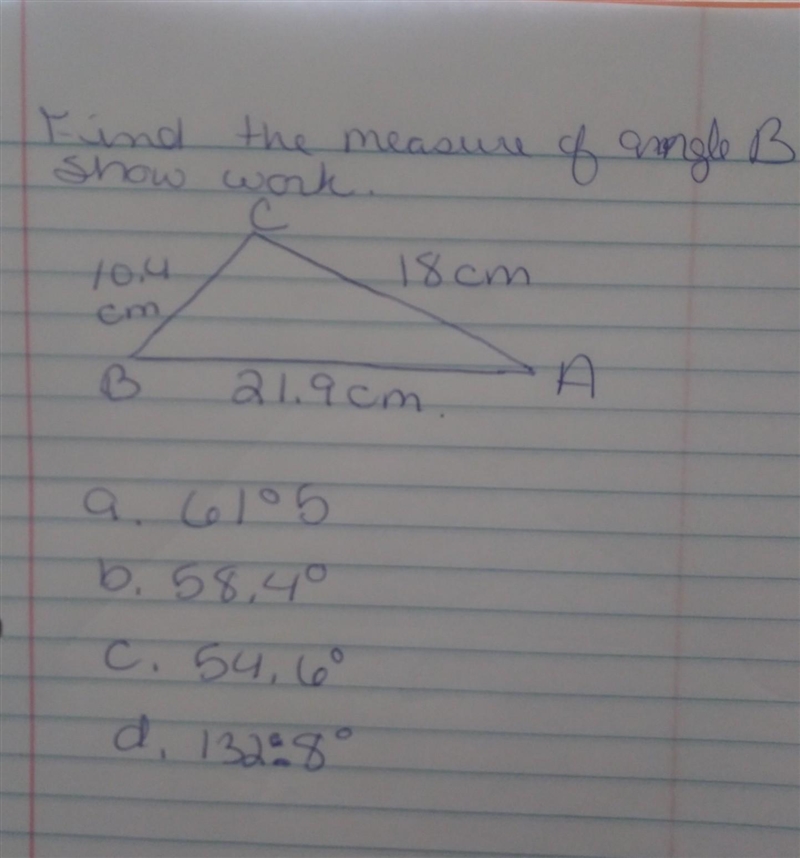 Find the measure of angle B
show work.
C
10.4
cm
18cm
B
21.9cm.
A
a. 61°5
b. 58.4°
c. 54.6°
d. 132.8°